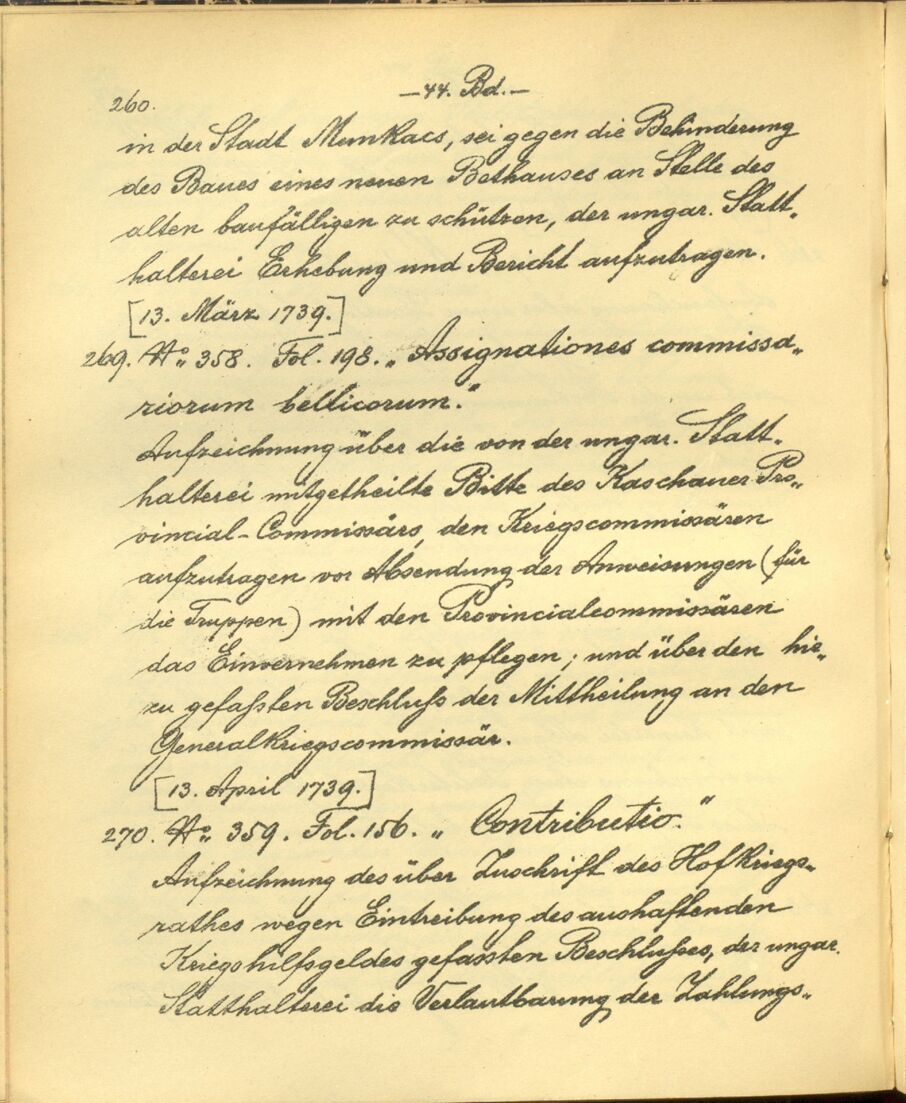 260.
—44. Bd.—
in der Stadt Munkacs, sei gegen die Behinderung
des Baues eines neuen Bethauses an Stelle des
alten baufälligen zu schützen, der ungar. Statt„
halterei Erhebung und Bericht aufzutragen.
[13. März 1739.]
269. No. 358. Fol. 198. „Assignationes commissa„
riorum bellicorum.“
Aufzeichnung über die von der ungar. Statt„
halterei mitgetheilte Bitte des Kaschauer Pro„
vincial-Commissärs, den Kriegscommissären
aufzutragen vor Absendung der Anweisungen (für
die Truppen) mit den Provincialcommissären
das Einvernehmen zu pflegen; und über den hie„
zu gefaßten Beschluß der Mittheilung an den
Generalkriegscommissär.
[13. April 1739.]
270. No. 359. Fol. 156. „Contributio.“
Aufzeichnung des über Zuschrift des Hofkriegs„
rathes wegen Eintreibung des aushaftenden
Kriegshilfsgeldes gefassten Beschlußes, der ungar.
Statthalterei die Verlautbarung der Zahlungs„